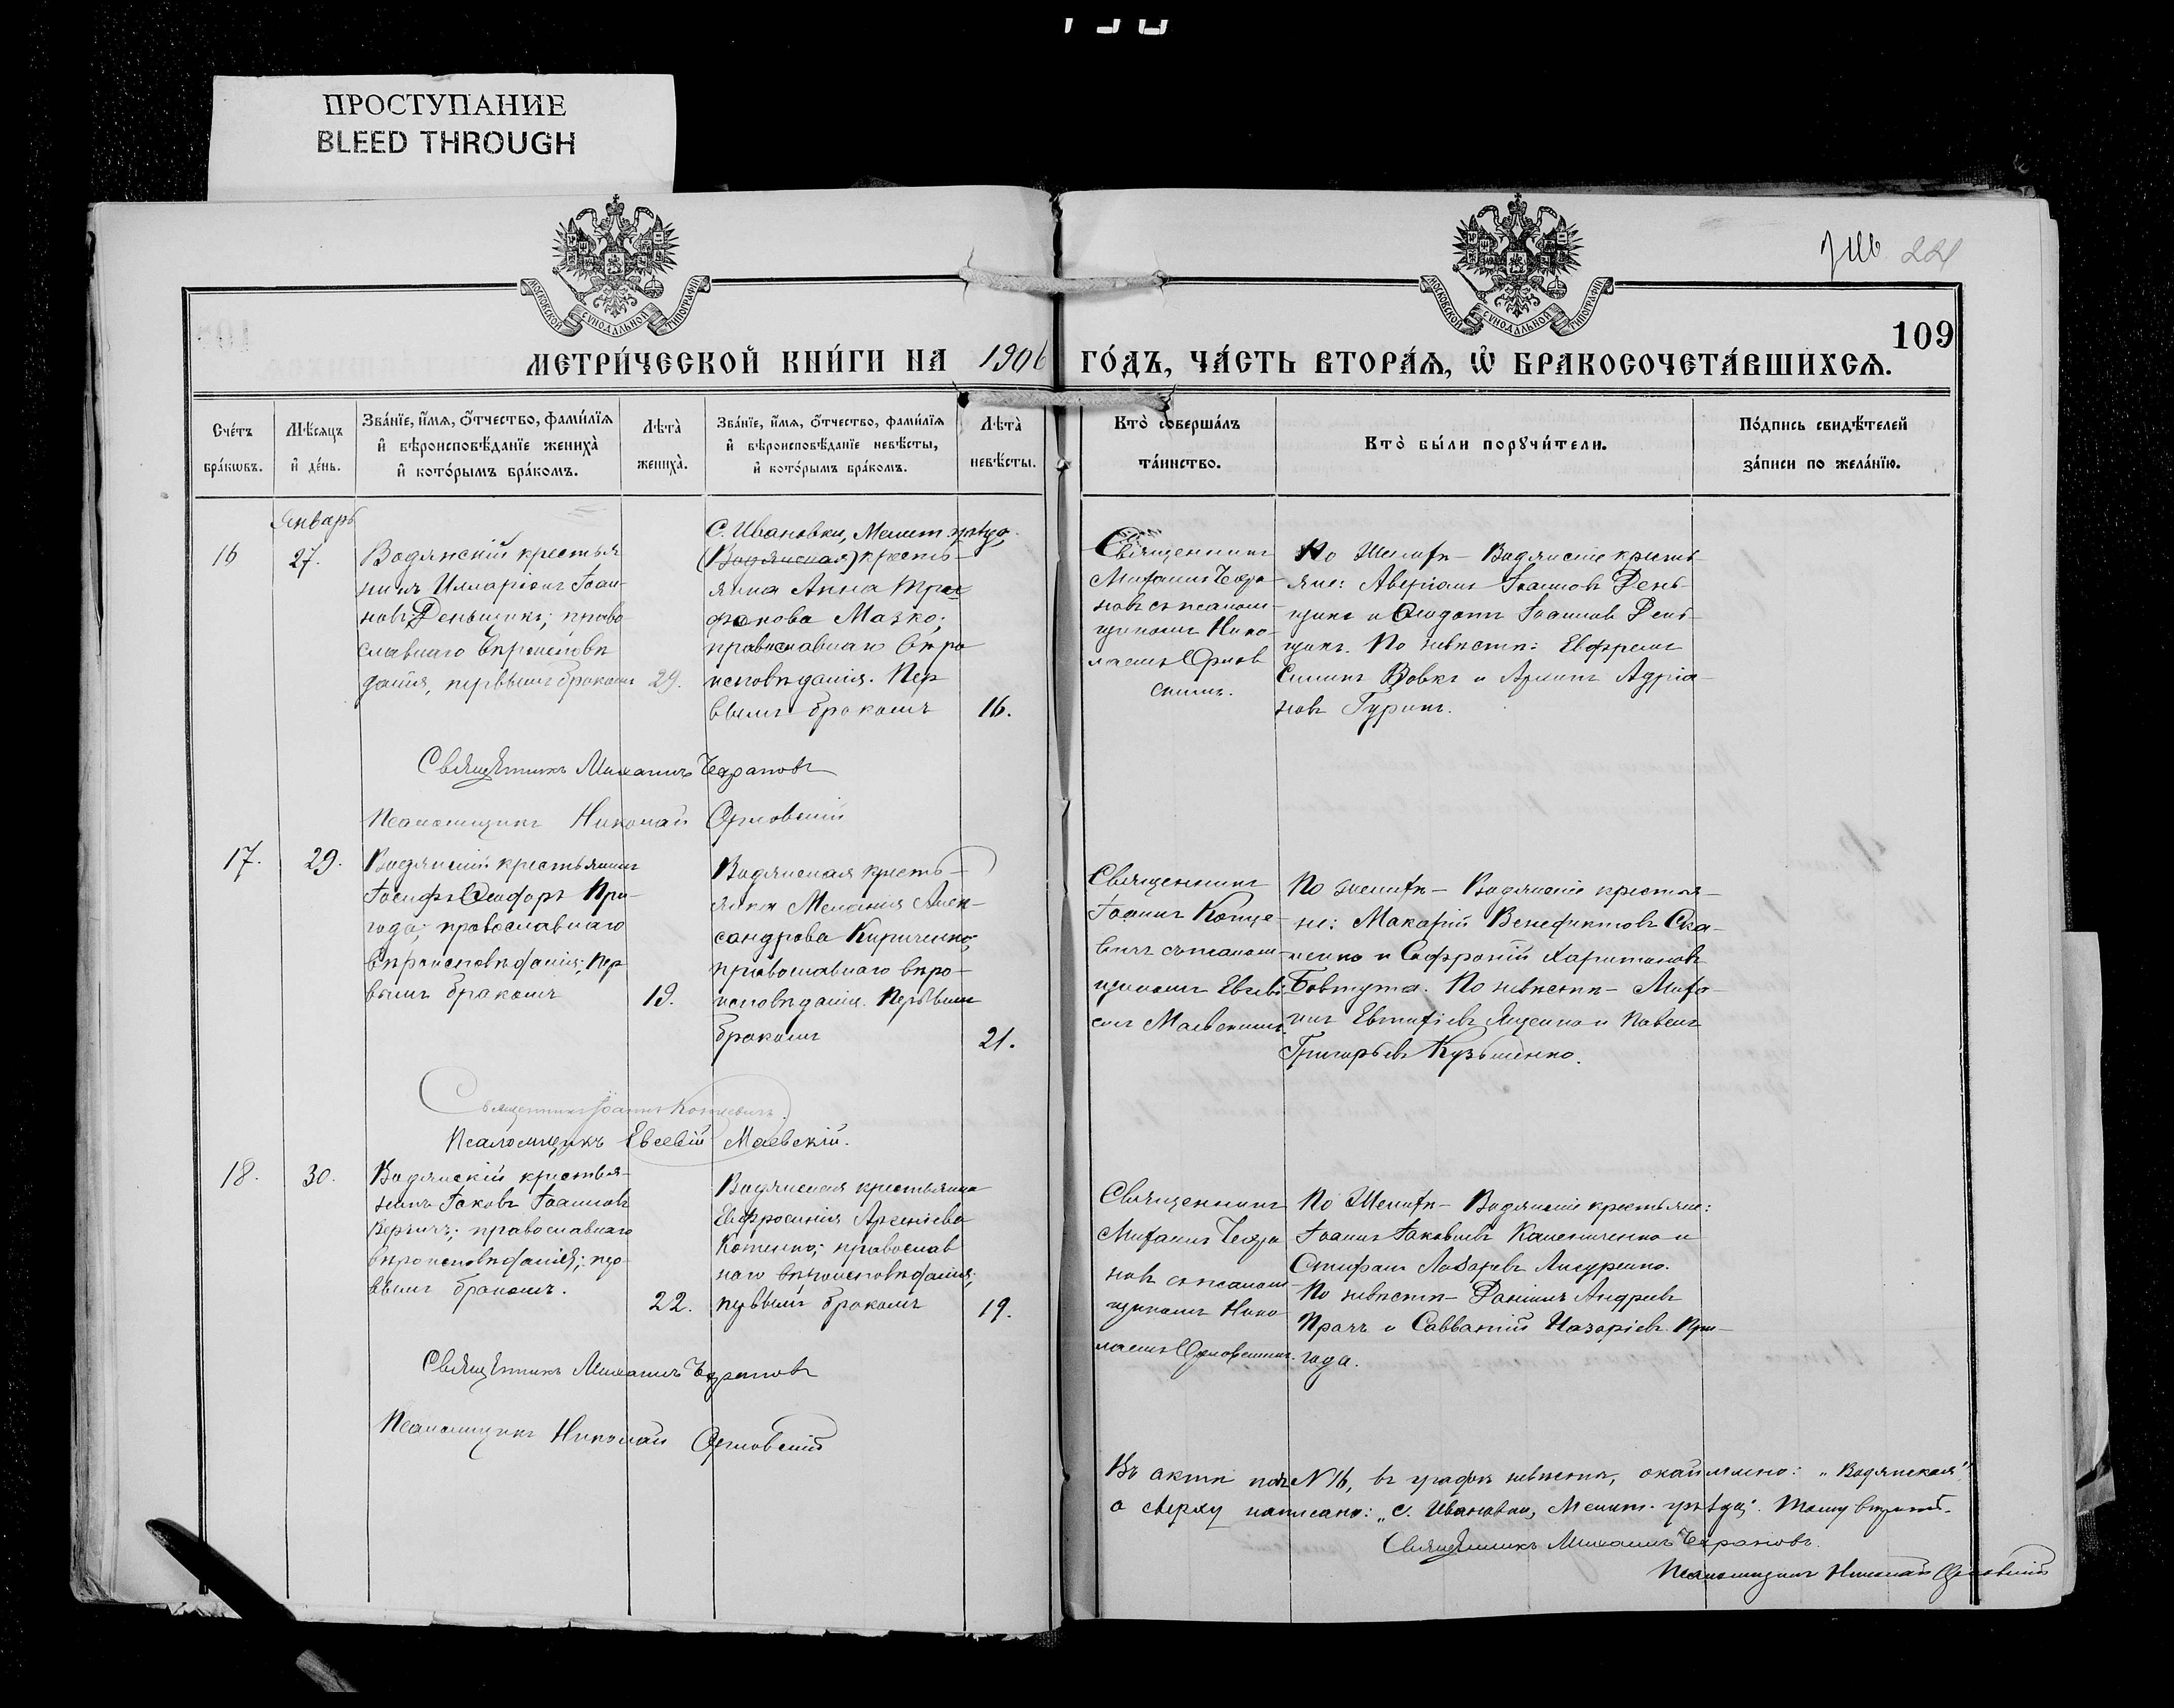 ПРОСТУПАНИЕ
BLEED THROUGH
221
109
МОСКОВСКОЙ СѴНОДАЛЬНОЙ ТИПОГРАФІИ
МОСКОВСКОЙ СѴНОДАЛЬНОЙ ТИПОГРАФІИ
МЕТРИ́ЧЕСКОЙ КНИ́ГИ НА 1906 ГО́ДЪ, ЧА́СТЬ ВТОРА́Ѧ, Ѡ҆ БРАКОСОЧЕТА́ВШИХСѦ.
Сче́тъ
бра́кѡвъ.
Мѣ́сяцъ
и҆ де́нь.
Зва́нїе, и҆́мѧ, ѻ҆́тчество, фами́лїѧ
и҆ вѣроисповѣ́данїе жениха̀
и҆ кото́рымъ бра́комъ.
Лѣта̀
жениха̀.
Зва́нїе, и҆́мѧ, ѻ҆́тчество, фами́лїѧ
и҆ вѣроисповѣ́данїе невѣ́сты,
и҆ кото́рымъ бра́комъ.
Лѣта̀
невѣ́сты.
Кто̀ соверша́лъ
та́инство.
Кто̀ бы́ли порꙋчи́тели.
По́дпись свидѣ́телей
за́писи по жела́нїю.
Январь
16
27.
Водянскій крестья
нинъ Илларіонъ Іоан-
новъ Деньщикъ; право
славнаго вѣроисповѣ
данія, первымъ бракомъ
29.
С. Ивановки, Мелит. уѣзда
(Водянская) кресть-
янка Анна Три
фонова Мазко;
православнаго вѣро
исповѣданія. Пер
вымъ бракомъ
16.
Священникъ
Михаилъ Чехра-
новъ съ псалом-
щикомъ Нико-
лаемъ Орлов
скимъ.
По женихѣ – Водянскіе кресть-
яне: Аверіанъ Іоанновъ День-
щикъ и Ѳеодотъ Іоанновъ День-
щикъ. По невѣстѣ: Евфремъ
Симинъ Вовкъ и Адріа-
новъ Гуринъ.
Священникъ Михаилъ Чехрановъ
Псаломщикъ Николай Орловскій
17.
29.
Водянскій крестьянинъ
Іосифъ Ѳеодоръ При-
года; православнаго
вѣроисповѣданія; пер
вымъ бракомъ
19.
Водянская кресть-
янка Меланія Алек-
сандрова Кириченко;
православнаго вѣро-
исповѣданія. Первымъ
бракомъ
21.
Священникъ
Іоаннъ Копце-
вичъ съ псалом-
щикомъ Евсеві-
емъ Маевскимъ.
По женихѣ – Водянскіе крестья-
не: Макарій Венедиктовъ Ска-
ченко и Софроній Харитоновъ
Бовтута. По невѣстѣ – Миха-
илъ Евтихіевъ Яценко и Павелъ
Григорьевъ Кузьменко.
Священникъ Іоаннъ Копцевичъ.
Псаломщикъ Евсевій Маевскій.
18.
30.
Водянскій крестья-
нинъ Іаковъ Іоанновъ
Верчичъ; православнаго
вѣроисповѣданія; пер-
вымъ бракомъ.
22.
Водянская крестьянка
Евфросинія Арсеніева
Котенко; православ
наго вѣроисповѣданія;
первымъ бракомъ
19.
Священникъ
Михаилъ Чехра
новъ съ псалом-
щикомъ Нико-
лаемъ Орловскимъ.
По женихѣ – Водянскіе крестьяне:
Іоаннъ Іаковлевъ Калениченко и
Стефанъ Лазаревъ Лисуренко.
По невѣстѣ – Даніилъ Андреевъ
Прачъ и Савватій Назаріевъ При-
года.
Священникъ Михаилъ Чехрановъ
Псаломщикъ Николай Орловскій
Въ актѣ подъ N 16, въ графѣ невѣсты, окаймлено: „Водянская",
а сверху написано: „С. Ивановки, Мелит. уѣзда". Тому вѣрить.
Священникъ Михаилъ Чехрановъ.
Псаломщикъ Николай Орловскій